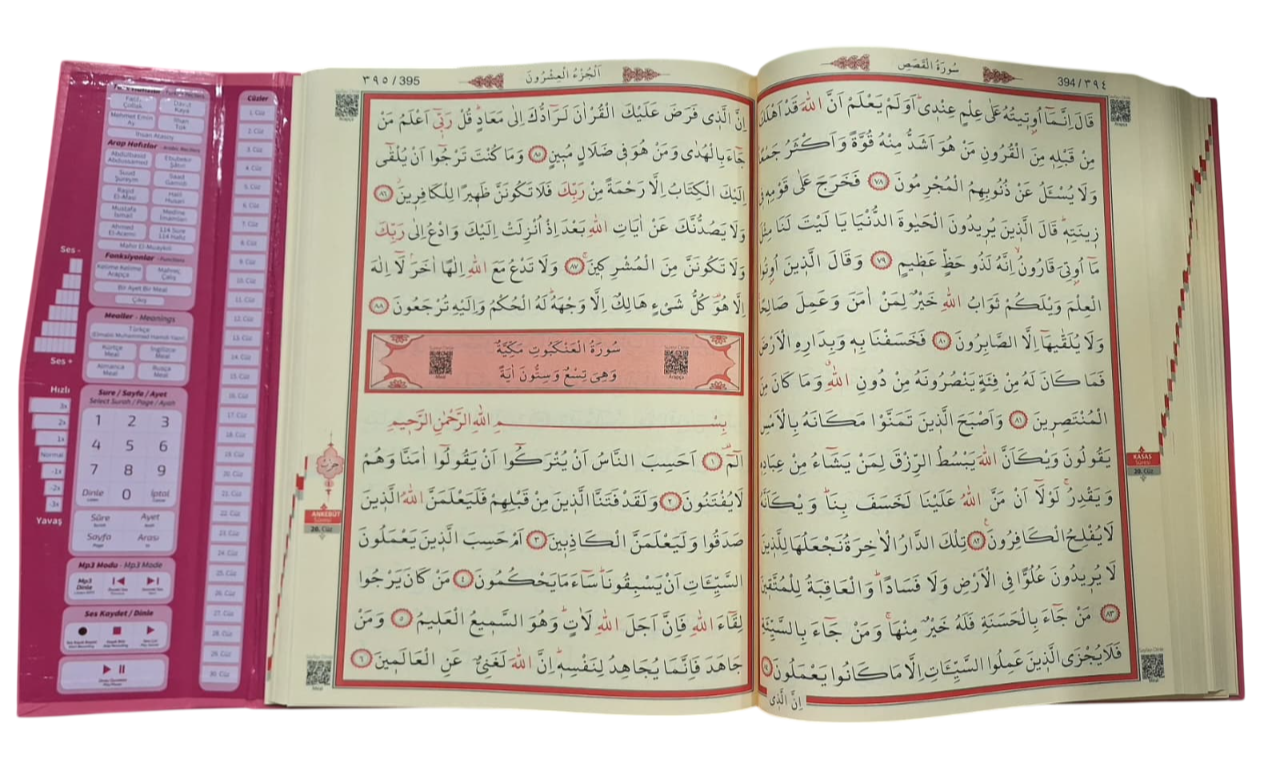 سُورَةُ الْقَصَصِ
394/٣٩٤
قَالَ اِنَّمَٓا اُو۫ت۪يتُهُ عَلٰى عِلْمٍ عِنْد۪يۜ اَوَلَمْ يَعْلَمْ اَنَّ اللّٰهَ قَدْ اَهْلَكَ
مِنْ قَبْلِه۪ مِنَ الْقُرُونِ مَنْ هُوَ اَشَدُّ مِنْهُ قُوَّةً وَاَكْثَرُ جَمْعًاۜ
وَلَا يُسْـَٔلُ عَنْ ذُنُوبِهِمُ الْمُجْرِمُونَ ﴿٧٨﴾ فَخَرَجَ عَلٰى قَوْمِه۪ ف۪ي
ز۪ينَتِه۪ۜ قَالَ الَّذ۪ينَ يُر۪يدُونَ الْحَيٰوةَ الدُّنْيَا يَا لَيْتَ لَنَا مِثْلَ
مَٓا اُو۫تِيَ قَارُونُۙ اِنَّهُ لَذُو حَظٍّ عَظ۪يمٍ ﴿٧٩﴾ وَقَالَ الَّذ۪ينَ اُو۫تُوا
الْعِلْمَ وَيْلَكُمْ ثَوَابُ اللّٰهِ خَيْرٌ لِمَنْ اٰمَنَ وَعَمِلَ صَالِحًاۚ
وَلَا يُلَقّٰيهَٓا اِلَّا الصَّابِرُونَ ﴿٨٠﴾ فَخَسَفْنَا بِه۪ وَبِدَارِهِ الْاَرْضَ
فَمَا كَانَ لَهُ مِنْ فِئَةٍ يَنْصُرُونَهُ مِنْ دُونِ اللّٰهِۗ وَمَا كَانَ مِنَ
الْمُنْتَصِر۪ينَ ﴿٨١﴾ وَاَصْبَحَ الَّذ۪ينَ تَمَنَّوْا مَكَانَهُ بِالْاَمْسِ
يَقُولُونَ وَيْكَاَنَّ اللّٰهَ يَبْسُطُ الرِّزْقَ لِمَنْ يَشَٓاءُ مِنْ عِبَادِه۪
وَيَقْدِرُۚ لَوْلَٓا اَنْ مَنَّ اللّٰهُ عَلَيْنَا لَخَسَفَ بِنَاۜ وَيْكَاَنَّهُ
لَا يُفْلِحُ الْكَافِرُونَ۟ ﴿٨٢﴾ تِلْكَ الدَّارُ الْاٰخِرَةُ نَجْعَلُهَا لِلَّذ۪ينَ
لَا يُر۪يدُونَ عُلُوًّا فِي الْاَرْضِ وَلَا فَسَادًاۜ وَالْعَاقِبَةُ لِلْمُتَّق۪ينَ
﴿٨٣﴾ مَنْ جَٓاءَ بِالْحَسَنَةِ فَلَهُ خَيْرٌ مِنْهَاۚ وَمَنْ جَٓاءَ بِالسَّيِّئَةِ
فَلَا يُجْزَى الَّذ۪ينَ عَمِلُوا السَّيِّـَٔاتِ اِلَّا مَا كَانُوا يَعْمَلُونَ ﴿٨٤﴾
اِنَّ الَّذ۪ي
KASAS
Suresi
20. Cüz
اَلْجُزْءُ الْعِشْرُونَ
٣٩٥ / 395
اِنَّ الَّذ۪ي فَرَضَ عَلَيْكَ الْقُرْاٰنَ لَرَٓادُّكَ اِلٰى مَعَادٍۜ قُلْ رَبّ۪ٓي اَعْلَمُ مَنْ
جَٓاءَ بِالْهُدٰى وَمَنْ هُوَ ف۪ي ضَلَالٍ مُب۪ينٍ ﴿٨٥﴾ وَمَا كُنْتَ تَرْجُٓوا اَنْ يُلْقٰٓى
اِلَيْكَ الْكِتَابُ اِلَّا رَحْمَةً مِنْ رَبِّكَ فَلَا تَكُونَنَّ ظَه۪يرًا لِلْكَافِر۪ينَۘ ﴿٨٦﴾
وَلَا يَصُدُّنَّكَ عَنْ اٰيَاتِ اللّٰهِ بَعْدَ اِذْ اُنْزِلَتْ اِلَيْكَ وَادْعُ اِلٰى رَبِّكَ
وَلَا تَكُونَنَّ مِنَ الْمُشْرِك۪ينَۚ ﴿٨٧﴾ وَلَا تَدْعُ مَعَ اللّٰهِ اِلٰهًا اٰخَرَۢ لَٓا اِلٰهَ
اِلَّا هُوَ۠ كُلُّ شَيْءٍ هَالِكٌ اِلَّا وَجْهَهُۜ لَهُ الْحُكْمُ وَاِلَيْهِ تُرْجَعُونَ ﴿٨٨﴾
سُورَةُ الْعَنْكَبُوتِ مَكِّيَّةٌ
وَهِيَ تِسْعٌ وَسِتُّونَ اٰيَةً
بِسْمِ اللّٰهِ الرَّحْمٰنِ الرَّح۪يمِ
الٓمٓۜ ﴿١﴾ اَحَسِبَ النَّاسُ اَنْ يُتْرَكُٓوا اَنْ يَقُولُٓوا اٰمَنَّا وَهُمْ
لَا يُفْتَنُونَ ﴿٢﴾ وَلَقَدْ فَتَنَّا الَّذ۪ينَ مِنْ قَبْلِهِمْ فَلَيَعْلَمَنَّ اللّٰهُ الَّذ۪ينَ
صَدَقُوا وَلَيَعْلَمَنَّ الْكَاذِب۪ينَ ﴿٣﴾ اَمْ حَسِبَ الَّذ۪ينَ يَعْمَلُونَ
السَّيِّـَٔاتِ اَنْ يَسْبِقُونَاۜ سَٓاءَ مَا يَحْكُمُونَ ﴿٤﴾ مَنْ كَانَ يَرْجُوا
لِقَٓاءَ اللّٰهِ فَاِنَّ اَجَلَ اللّٰهِ لَاٰتٍۜ وَهُوَ السَّم۪يعُ الْعَل۪يمُ ﴿٥﴾ وَمَنْ
جَاهَدَ فَاِنَّمَا يُجَاهِدُ لِنَفْسِه۪ۜ اِنَّ اللّٰهَ لَغَنِيٌّ عَنِ الْعَالَم۪ينَ ﴿٦﴾
حزب
ANKEBÛT
Suresi
20. Cüz
Fatih Çollak
Davut Kaya
Mehmet Emin Ay
İlhan Tok
İhsan Atasoy
Arap Hafızlar - Arabic Reciters
Abdülbasid Abdussamed
Ebubekir Şatıri
Suud Şureym
Saad Gamidi
Raşid El-Afasi
Halil Husari
Mustafa İsmail
Medine İmamları
Ahmed El-Acemi
114 Sure 114 Hafız
Mahir El-Muaykili
Fonksiyonlar - Functions
Kelime Kelime Arapça
Mahreç Çalış
Bir Ayet Bir Meal
Çıkış
Mealler - Meanings
Türkçe
(Elmalılı Muhammed Hamdi Yazır)
Kürtçe Meal
İngilizce Meal
Almanca Meal
Rusça Meal
Sure / Sayfa / Ayet
Select Surah / Page / Ayah
1 2 3
4 5 6
7 8 9
Dinle 0 İptal
Sûre Ayet
Sayfa Arası
Mp3 Modu - Mp3 Mode
Mp3 Dinle
Ses Kaydet / Dinle
Cüzler
1. Cüz
2. Cüz
3. Cüz
4. Cüz
5. Cüz
6. Cüz
7. Cüz
8. Cüz
9. Cüz
10. Cüz
11. Cüz
12. Cüz
13. Cüz
14. Cüz
15. Cüz
16. Cüz
17. Cüz
18. Cüz
19. Cüz
20. Cüz
21. Cüz
22. Cüz
23. Cüz
24. Cüz
25. Cüz
26. Cüz
27. Cüz
28. Cüz
29. Cüz
30. Cüz
Ses -
Ses +
Hızlı
3x
2x
1x
Normal
-1x
-2x
-3x
Yavaş